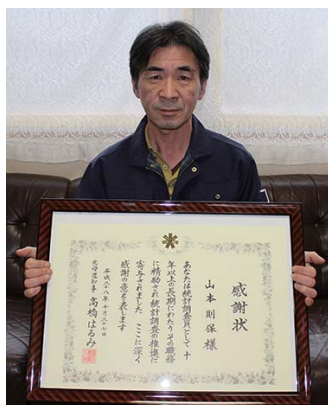 感謝状
山本則保様
あなたは統計調査員として十
年以上の長期にわたりその職務
に精励され統計調査の推進に
寄与されました ここに深く
感謝の意を表します
平成二十八年十月二十七日
北海道知事 高橋はるみ